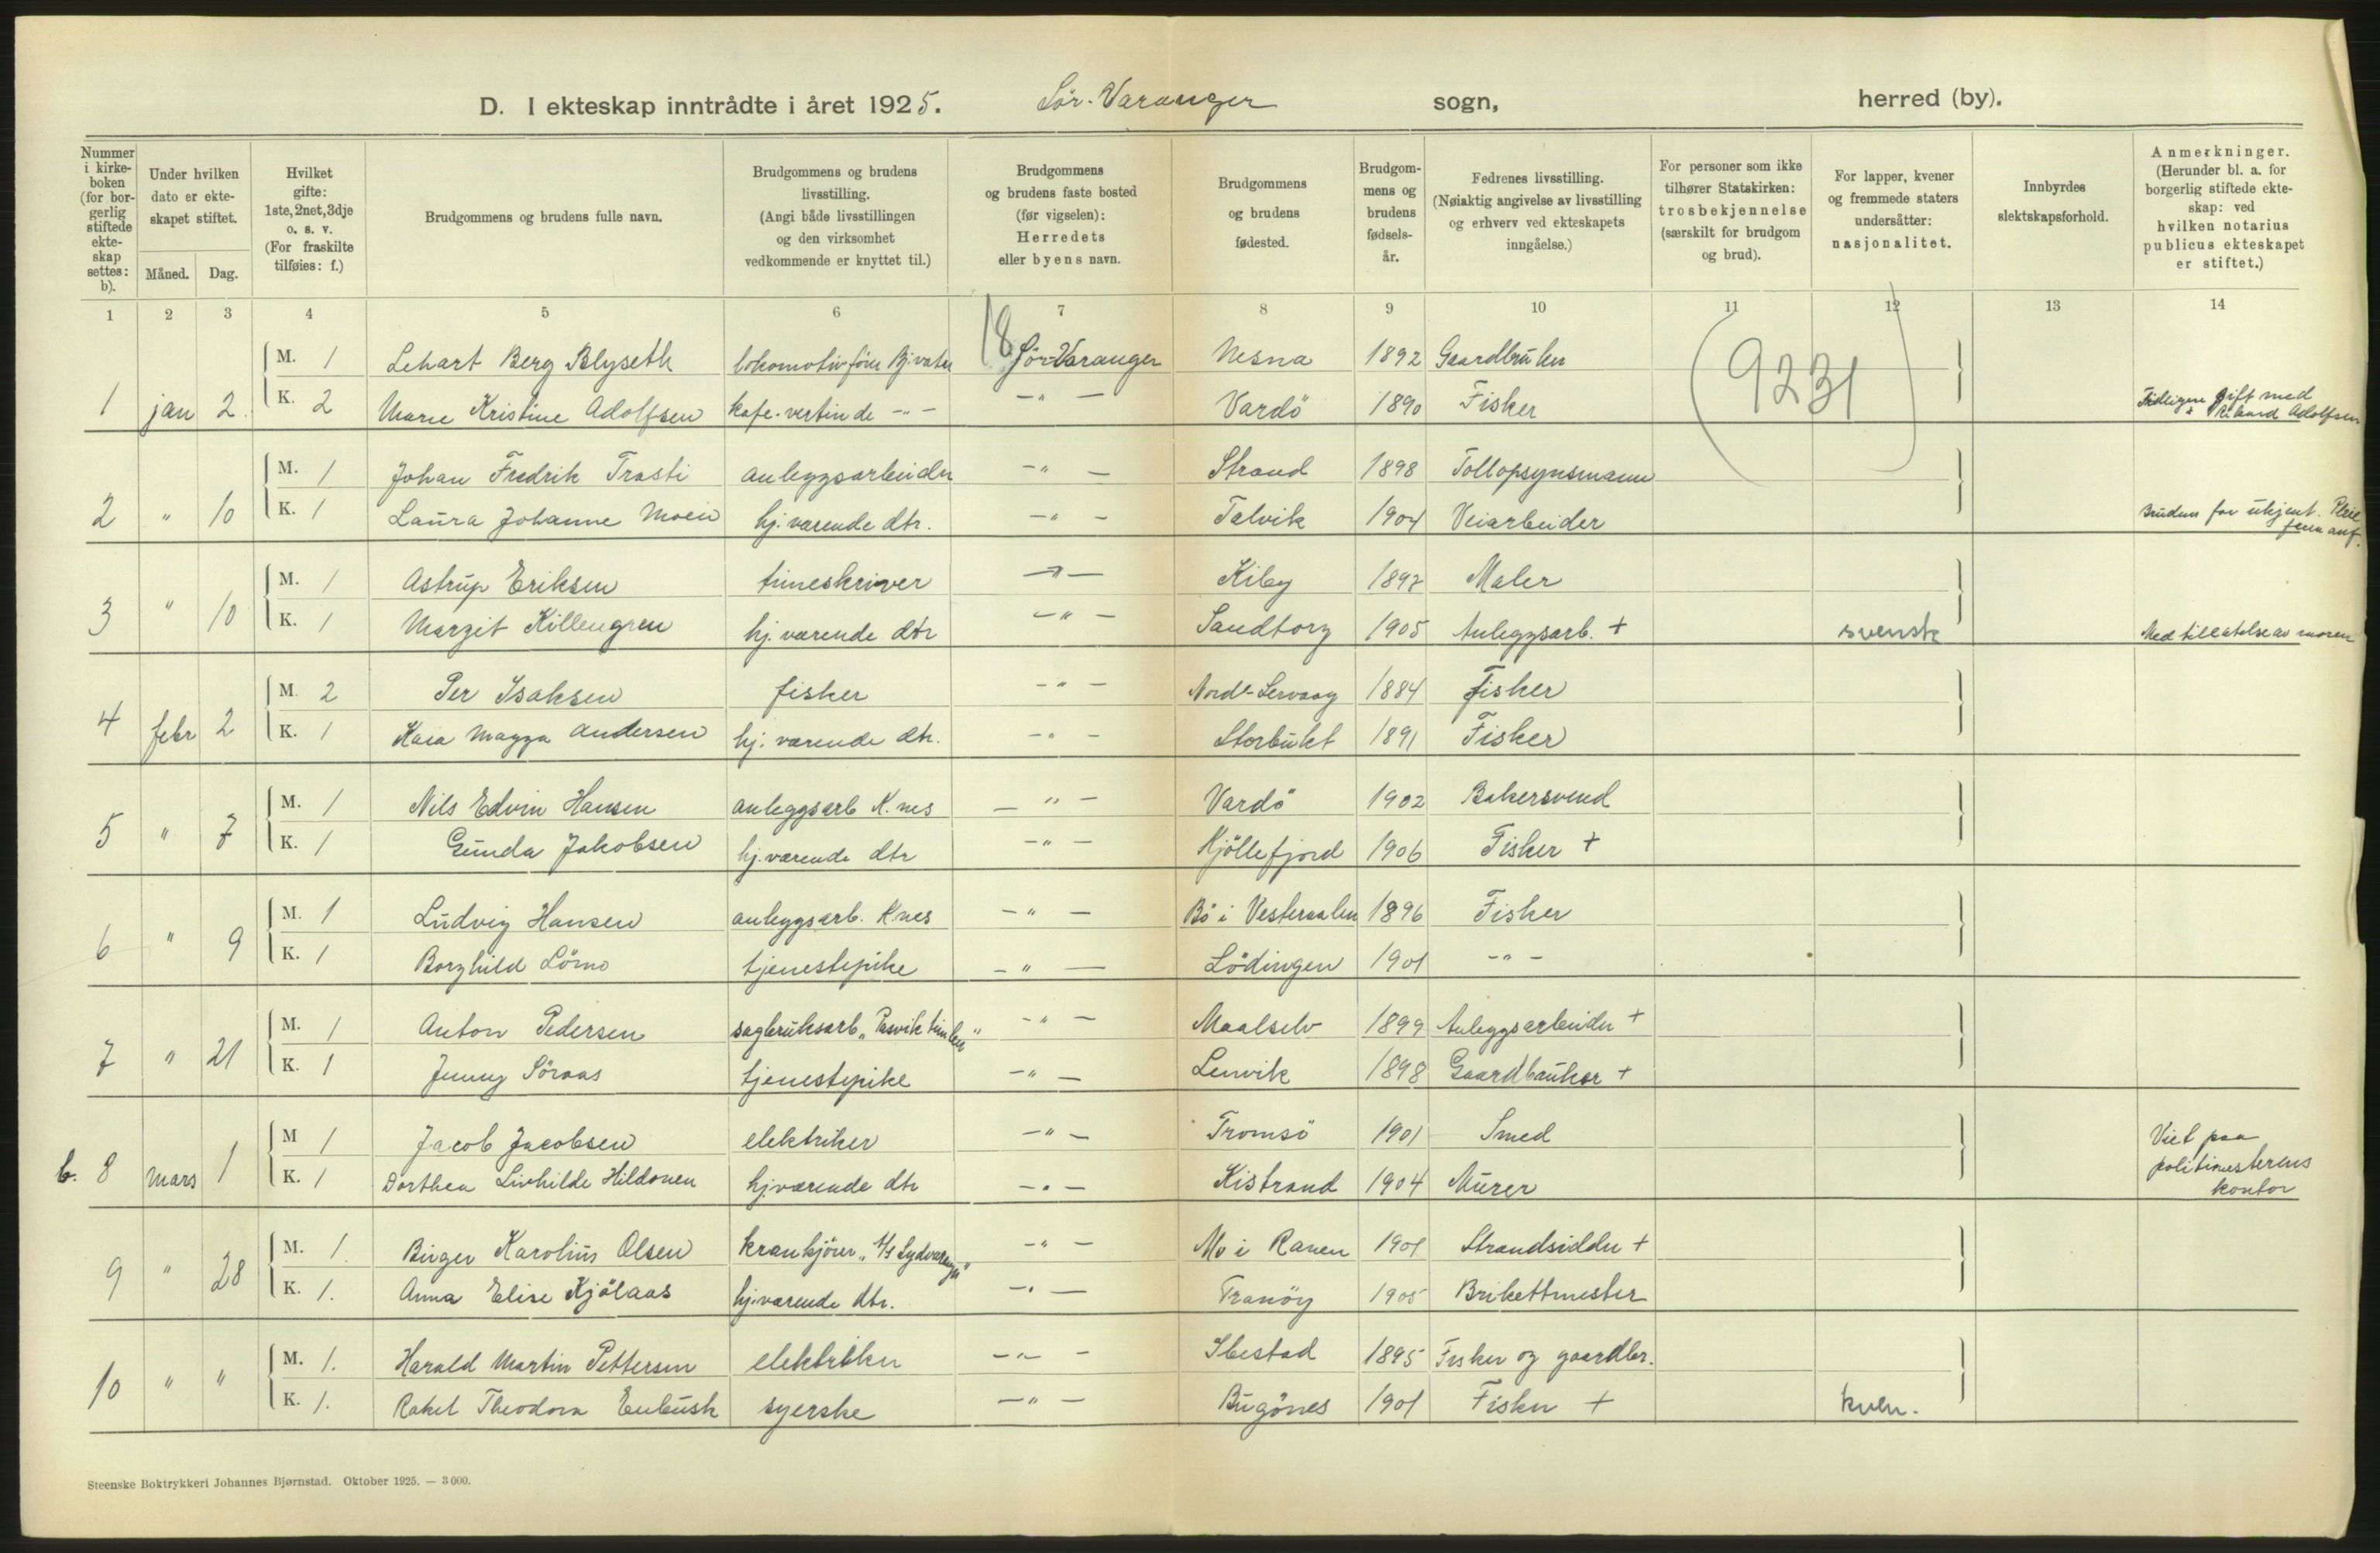 D. I ekteskap inntrådte i året 1925. Sör-Varanger sogn, herred (by).
Nummer i kirkeboken (for borgerlig stiftede ekteskap settes: b).
Under hvilken dato er ekteskapet stiftet.
Måned. Dag.
Hvilket gifte: 1ste, 2net, 3dje o. s. v. (For fraskilte tilføies: f.)
Brudgommens og brudens fulle navn.
Brudgommens og brudens livsstilling. (Angi både livsstillingen og den virksomhet vedkommende er knyttet til.)
Brudgommens og brudens faste bosted (før vigselen): Herredets eller byens navn.
Brudgommens og brudens fødested.
Brudgommens og brudens fødselsår.
Fedrenes livsstilling. (Nøiaktig angivelse av livsstilling og erhverv ved ekteskapets inngåelse.)
For personer som ikke tilhører Statskirken: trosbekjennelse (særskilt for brudgom og brud).
For lapper, kvener og fremmede staters undersåtter: nasjonalitet.
Innbyrdes slektskapsforhold.
Anmerkninger. (Herunder bl. a. for borgerlig stiftede ekteskap: ved hvilken notarius publicus ekteskapet er stiftet.)
1 2 3 4 5 6 7 8 9 10 11 12 13 14
18 (9231)
M. 1 Lehart Berg Blyseth lokomotivförer Bj.vatn Sör-Varanger Nesna 1892 Gaardbruker
1 jan 2. K. 2 Marie Kristine Adolfsen kafe-vertinde -"- -"- Vardö 1890 Fisker Tidligere gift med Rikard Adolfsen
M. 1 Johan Fredrik Trasti anleggsarbeider -"- Strand 1898 Tollopsynsmann
2 " 10 K. 1 Laura Johanne Moen hj.værende dtr. -"- Talvik 1904 Veiarbeider Brudens far ukjent.
M. 1 Astrup Eriksen timeskriver -"- Kiby 1897 Maler
3 " 10 K. 1 Margit Killengren hj. værende dtr -"- Sandtorg 1905 Anleggsarb. + svensk Med tillatelse av moren
M. 2 Per Isaksen fisker -"- 1884 Fisker
4 febr 2 K. 1 Kaia Magga Andersen hj. værende dtr. -"- Storbukt 1891 Fisker
M. 1 Nils Edvin Hansen anleggsarb K.nes -"- Vardö 1902 Bakersvend
5 " 7 K. 1 Gunda Jakobsen hj.værende dtr -"- Kjöllefjord 1906 Fisker +
M. 1 Ludvig Hansen anleggsarb. K.nes -"- Bö i Vesteraalen 1896 Fisker
6 " 9 K. 1 Borghild Lömo tjenestepike -"- Lödingen 1901 -"-
M. 1 Anton Pedersen sagbruksarb. "Pasvik timber" -"- Maalselv 1899 Anleggsarbeider +
7 " 21 K. 1 Jenny Söraas tjenestepike -"- Lenvik 1898 Gaardbruker +
M 1 Jacob Jacobsen elektriker -"- Tromsö 1901 Smed
b. 8 mars 1 K. 1 Dorthea Livhilde Hildonen hj.værende dtr -"- Kistrand 1904 Murer Viet paa politimesterens kontor
M. 1. Birger Karolius Olsen krankjörer "A/S Sydvaranger" -"- Mo i Ranen 1901 Strandsidder +
9 " 28 K. 1. Anna Elise Kjölaas hj.værende dtr. -"- Tranöy 1905 Brikettmester
M. 1. Harald Martin Pettersen elektriker -"- Ibestad 1895 Fisker og gaardbr.
10 " " K. 1. Rakel Theodora Enbusk syerske -"- Bugönes 1901 Fisker + kven.
Steenske Boktrykkeri Johannes Bjørnstad. Oktober 1925. — 3 000.